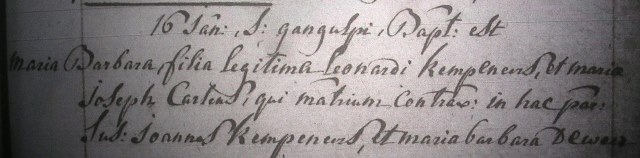 16 Jan: S: gangulpi, Bapt: est
Maria Barbara, filia legitima leonardi Kempeneers, et maria
Joseph Carteus, qui matrium contrax: in hac par:
Sus: Joannes Kempeneers, et maria barbara Dewer